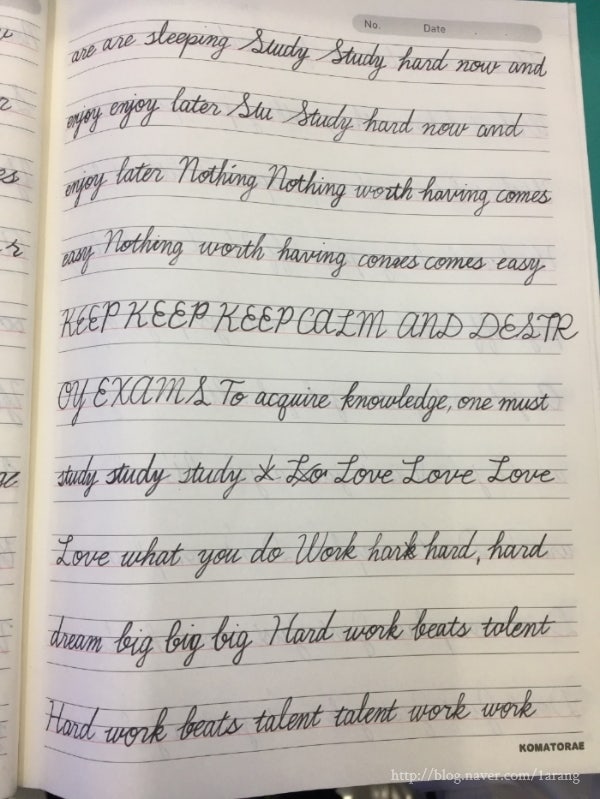 No. Date
are are sleeping Study Study hard now and
enjoy enjoy later Stu Study hard now and
enjoy later Nothing Nothing worth having comes
easy Nothing worth having comes comes easy
KEEP KEEP KEEP CALM AND DESTR
OY EXAMS To acquire knowledge, one must
study study study Love Love Love
Love what you do Work hark hard, hard
dream big big big Hard work beats talent
Hard work beats talent talent work work
KOMATORAE
http://blog.naver.com/1arang